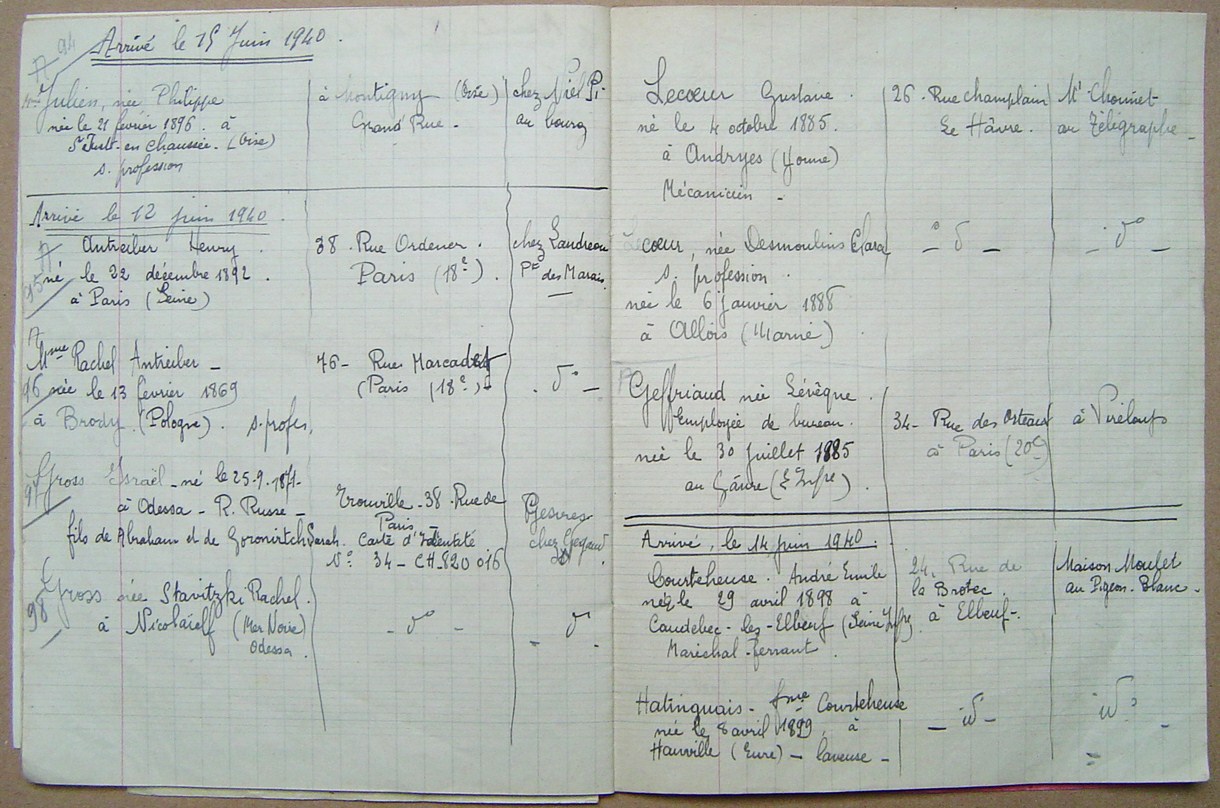 A 94
Arrivé le 15 Juin 1940.
Julien, née Philippe
née le 21 février 1896. à
St Just-en chaussée. (Oise)
s. profession
à Montigny (Oise)
Grand' Rue.
chez
au bourg
Arrivé le 12 juin 1940.
A
95
Antreiber Henry.
né le 22 décembre 1892.
à Paris (Seine)
38. Rue Ordener.
Paris (18e).
chez Landreau
des Marais.
A
96
Mme Rachel Antreiber _
née le 13 février 1869
à Brody (Pologne). s. profes,
76 - Rue Marcadet
(Paris (18e) -
. do _
97
Gross Israël _ né le 25.9.
à Odessa - R. Russe _
fils de Abraham et de Goronirtch Sarah.
Trouville - 38. Rue de
Paris _
Carte d'Identité
No 34 - CH. 820 016
Gesvres
chez
98
Gross née Stavitzki Rachel.
à Nicolaïeff (Mer Noire)
Odessa.
- do -
- do -
Lecœur Gustave.
né le 4 octobre 1885.
à Andryes (Yonne)
Mécanicien _
26. Rue Champlain
Le Hâvre.
au Télégraphe _
Lecœur, née Desmoulins Clara
s. profession.
née le 6 janvier 1888
à (Marne)
_ do _
_ do _
Geffriaud née Lévêque.
Employée de bureau.
née le 30 juillet 1885
au Gâvre (L. Infre).
34 - Rue des Orteaux
à Paris (20e)
à Vireloup
Arrivé, le 14 juin 1940.
Courteheuse. André Emile
né le 29 avril 1898 à
Caudebec-les-Elbeuf (Seine Infre)
Maréchal-ferrant.
24, Rue de
la
à Elbeuf-
Maison Moulet
au Pigeon-Blanc.
Hatinguais - fme Courteheuse
née le 8 avril 1899, à
Hauville (Eure) _ laveuse _
_ id _
id